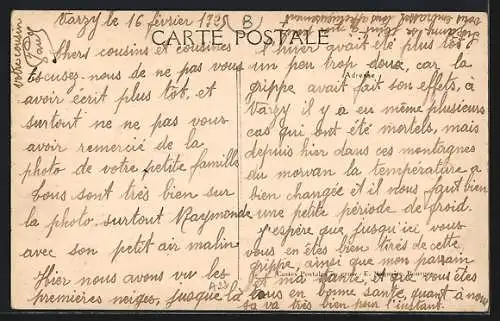 Varzy le 16 février 1925
B
CARTE POSTALE
Chers cousins et cousines
Excusez-nous de ne pas vous
avoir écrit plus tôt, et
surtout ne ne pas vous
avoir remercié de la
photo de votre petite famille
tous sont très bien sur
la photo. surtout Raymonde
avec son petit air malin.
Hier nous avons vu les
premières neiges, jusque là
l'hiver avait été plus tôt
un peu trop doux, car la
Adresse
grippe avait fait son effets, à
Varzy il y a eu même plusieurs
cas qui ont été mortels, mais
depuis hier dans ces montagnes
du morvan la température a
bien changée et il nous faut bien
une petite période de froid.
J'espère que jusqu'ici, vous
vous en êtes bien tirés de cette
grippe, ainsi que mon parrain
et ma et que vous êtes
tous en bonne santé, quant à nous
sa va très bien pour l'instant.
votre cousin
vous embrassent tous affectueusement